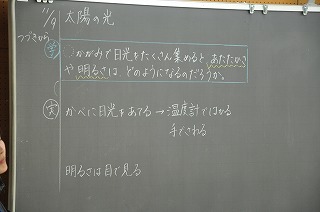 11/9
太陽の光
つづきから
かがみで日光をたくさん集めると、あたたかさ
や明るさは、どのようになるのだろうか。
実 かべに日光をあてる→温度計ではかる
手でさわる
明るさは目で見る